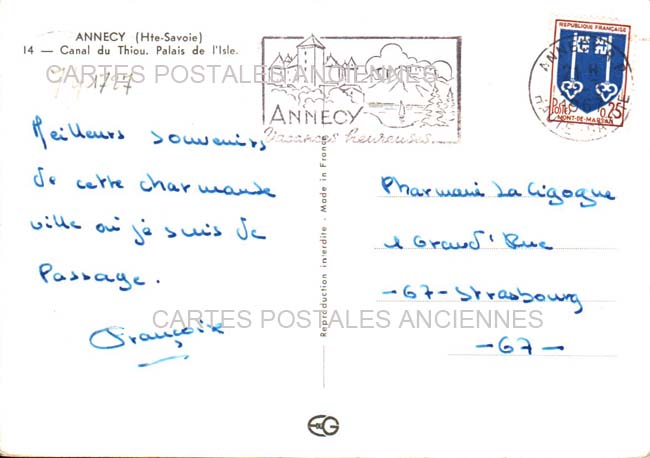 ANNECY (Hte-Savoie)
14 — Canal du Thiou. Palais de l'Isle.
1727
CARTES POSTALES ANCIENNES
ANNECY
Vacances heureuses...
REPUBLIQUE FRANÇAISE
POSTES
0,25
MONT-DE-MARSAN
ANNECY
HTE-SAVOIE
Meilleurs souvenirs
de cette charmante
ville où je suis de
Passage.
Françoise
Reproduction interdite - Made in France
Pharmacie La Cigogne
1 Grand' Rue
-67- Strasbourg
-67-
CARTES POSTALES ANCIENNES
EG